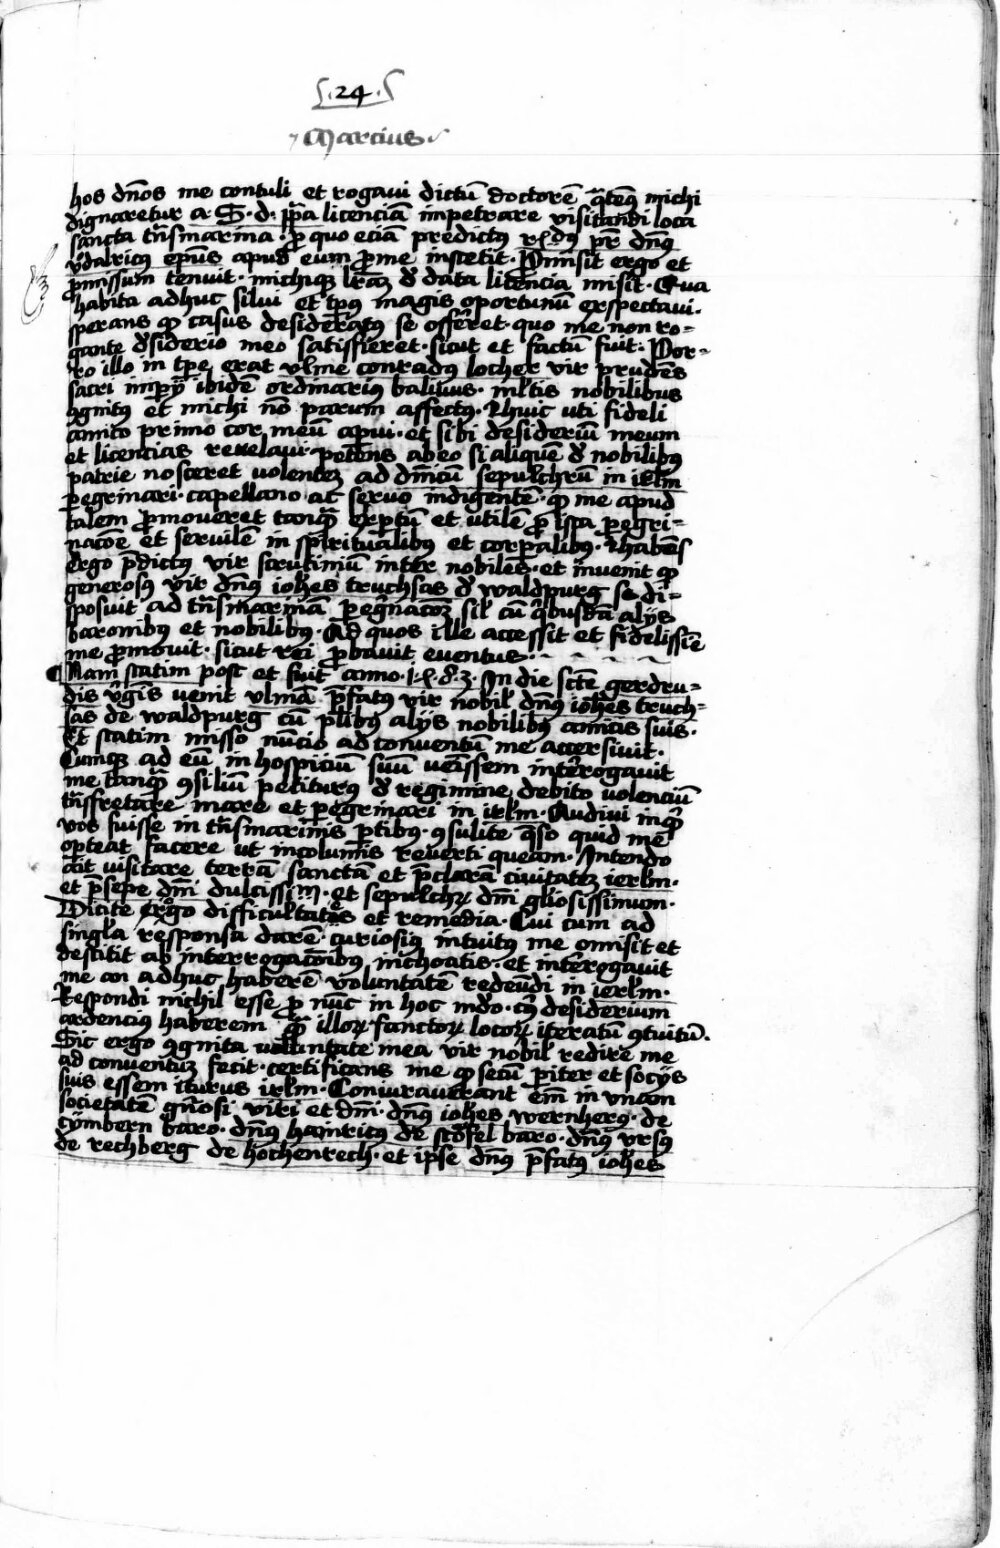 24
Marcius
hos dños me contuli et rogaui dictū doctorē q̄tenꝰ michi
dignaretur a S. d. ꝑpa licenciā impetrare visitandi loca
sancta trāsmarina. ꝓ quo eciā predictꝰ pr̄ dñꝰ
vdalricꝰ epūs apud eum ꝓ me institit. Promisit ergo et
ꝓmissum tenuit. michiqꝫ lr̄aꝫ d̄ data licencia misit. Qua
habita adhuc silui et tp̄us magis oportunū expectaui.
sperans ꝙ casus desideratꝰ se offerret. quo me non ro=
gante d̄siderio meo satisfieret. sicut et factū fuit. Por=
ro illo in tp̄e erat vlme conradꝰ locher vir prudēs
sacri imꝑij ibidē ordinariꝰ baliuus. ml̄tis nobilibus
ꝯgnitꝰ et michi nō parum affectꝰ. Huic vti fideli
amico primo cor meū aperui. et sibi desideriū meum
et licencias reuelaui. petens ab eo si aliquē d̄ nobilibꝰ
patrie nosceret uolenteꝫ ad dn̄icū sepulchrū in ierl̄m
ꝑegrinari. capellano ac seruo indigentē. ꝙ me apud
talem ꝓmoueret tanq̄ꝫ exꝑtū et utilē ꝓ ista ꝑegri=
nacōe et seruilē in spiritualibꝰ et corꝑalibꝰ. Habēs
ergo p̄dictus vir scrutiniū inter nobiles. et inuenit ꝙ
generosꝰ vir dñꝰ ioh̄es truchsas d̄ waldpurg se di=
sposuit ad trāsmarinā ꝑegrīacōeꝫ sil̄ cū q̄busdā alijs
baronibꝰ et nobilibꝰ. Ad quos ille accessit et fidelissīe
me ꝓmouit. sicut rei ꝓbauit euentus.
Nam statim post et fuit anno. In die scte gerdru=
dis v̄gīs uenit vlmā p̄fatꝰ vir nobil̄ dñꝰ ioh̄es truch=
sas de waldpurg cū pl̄ibꝰ alijs nobilibꝰ amicis suis.
Et statim misso nūcio ad conuentū me accersiuit.
Cumqꝫ ad eū in hospiciū suū uenissem interrogauit
me tanq̄ꝫ ꝯsiliū petiturꝰ d̄ regimine debito volenciū
trāsfretare mare et ꝑegrinari in ierl̄m. Audiui inq̄t
vos fuisse in trāsmarinis ꝑtibꝰ. ꝯsulite q̄so quid me
oporteat facere ut incolumis reuerti queam. Intendo
ait visitare terrā sanctā et p̄clarā ciuitateꝫ ierl̄m.
et p̄sepe dn̄i dulcissim̄. et sepulchꝝ dn̄i gl̄iosissimum.
Dicite ergo difficultates et remedia. Cui cum ad
singl̄a responsa darē curiosiꝰ intuitꝰ me omisit et
destitit ab interrogacōibꝰ inchoatis. et interrogauit
me an adhuc haberē voluntatē redeundi in ierl̄m.
Respondi nichil esse ꝓ nūc in hoc mūdo. cuiꝰ desiderium
ardenciꝰ haberem q̄ꝫ illoꝝ sanctoꝝ locoꝝ iteratū ꝯtuitū.
Sic ergo ꝯgnita uoluntate mea vir nobil̄ redire me
ad conuentuꝫ fecit. certificans me ꝙ secū pariter et socijs
suis essem iturus ierl̄m. Coniurauerant em̄ in vnam
societatē gn̄osi viri et dn̄i. dñꝰ ioh̄es wernherꝰ de
cymbern baro. dñꝰ hainricꝰ de stoffel baro. dñꝰ vrsꝰ
de rechberg de hochenrech. et ipse dñꝰ p̄fatꝰ ioh̄es